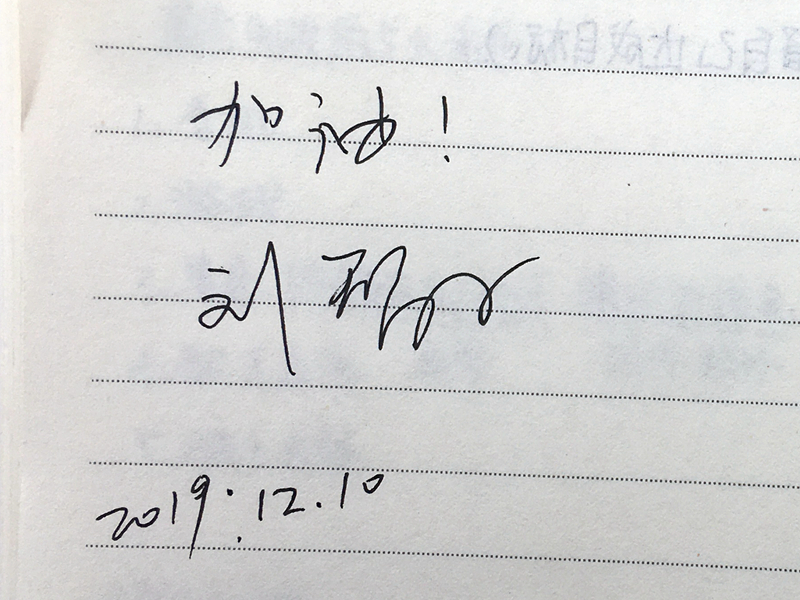 加油！
刘
2019.12.10